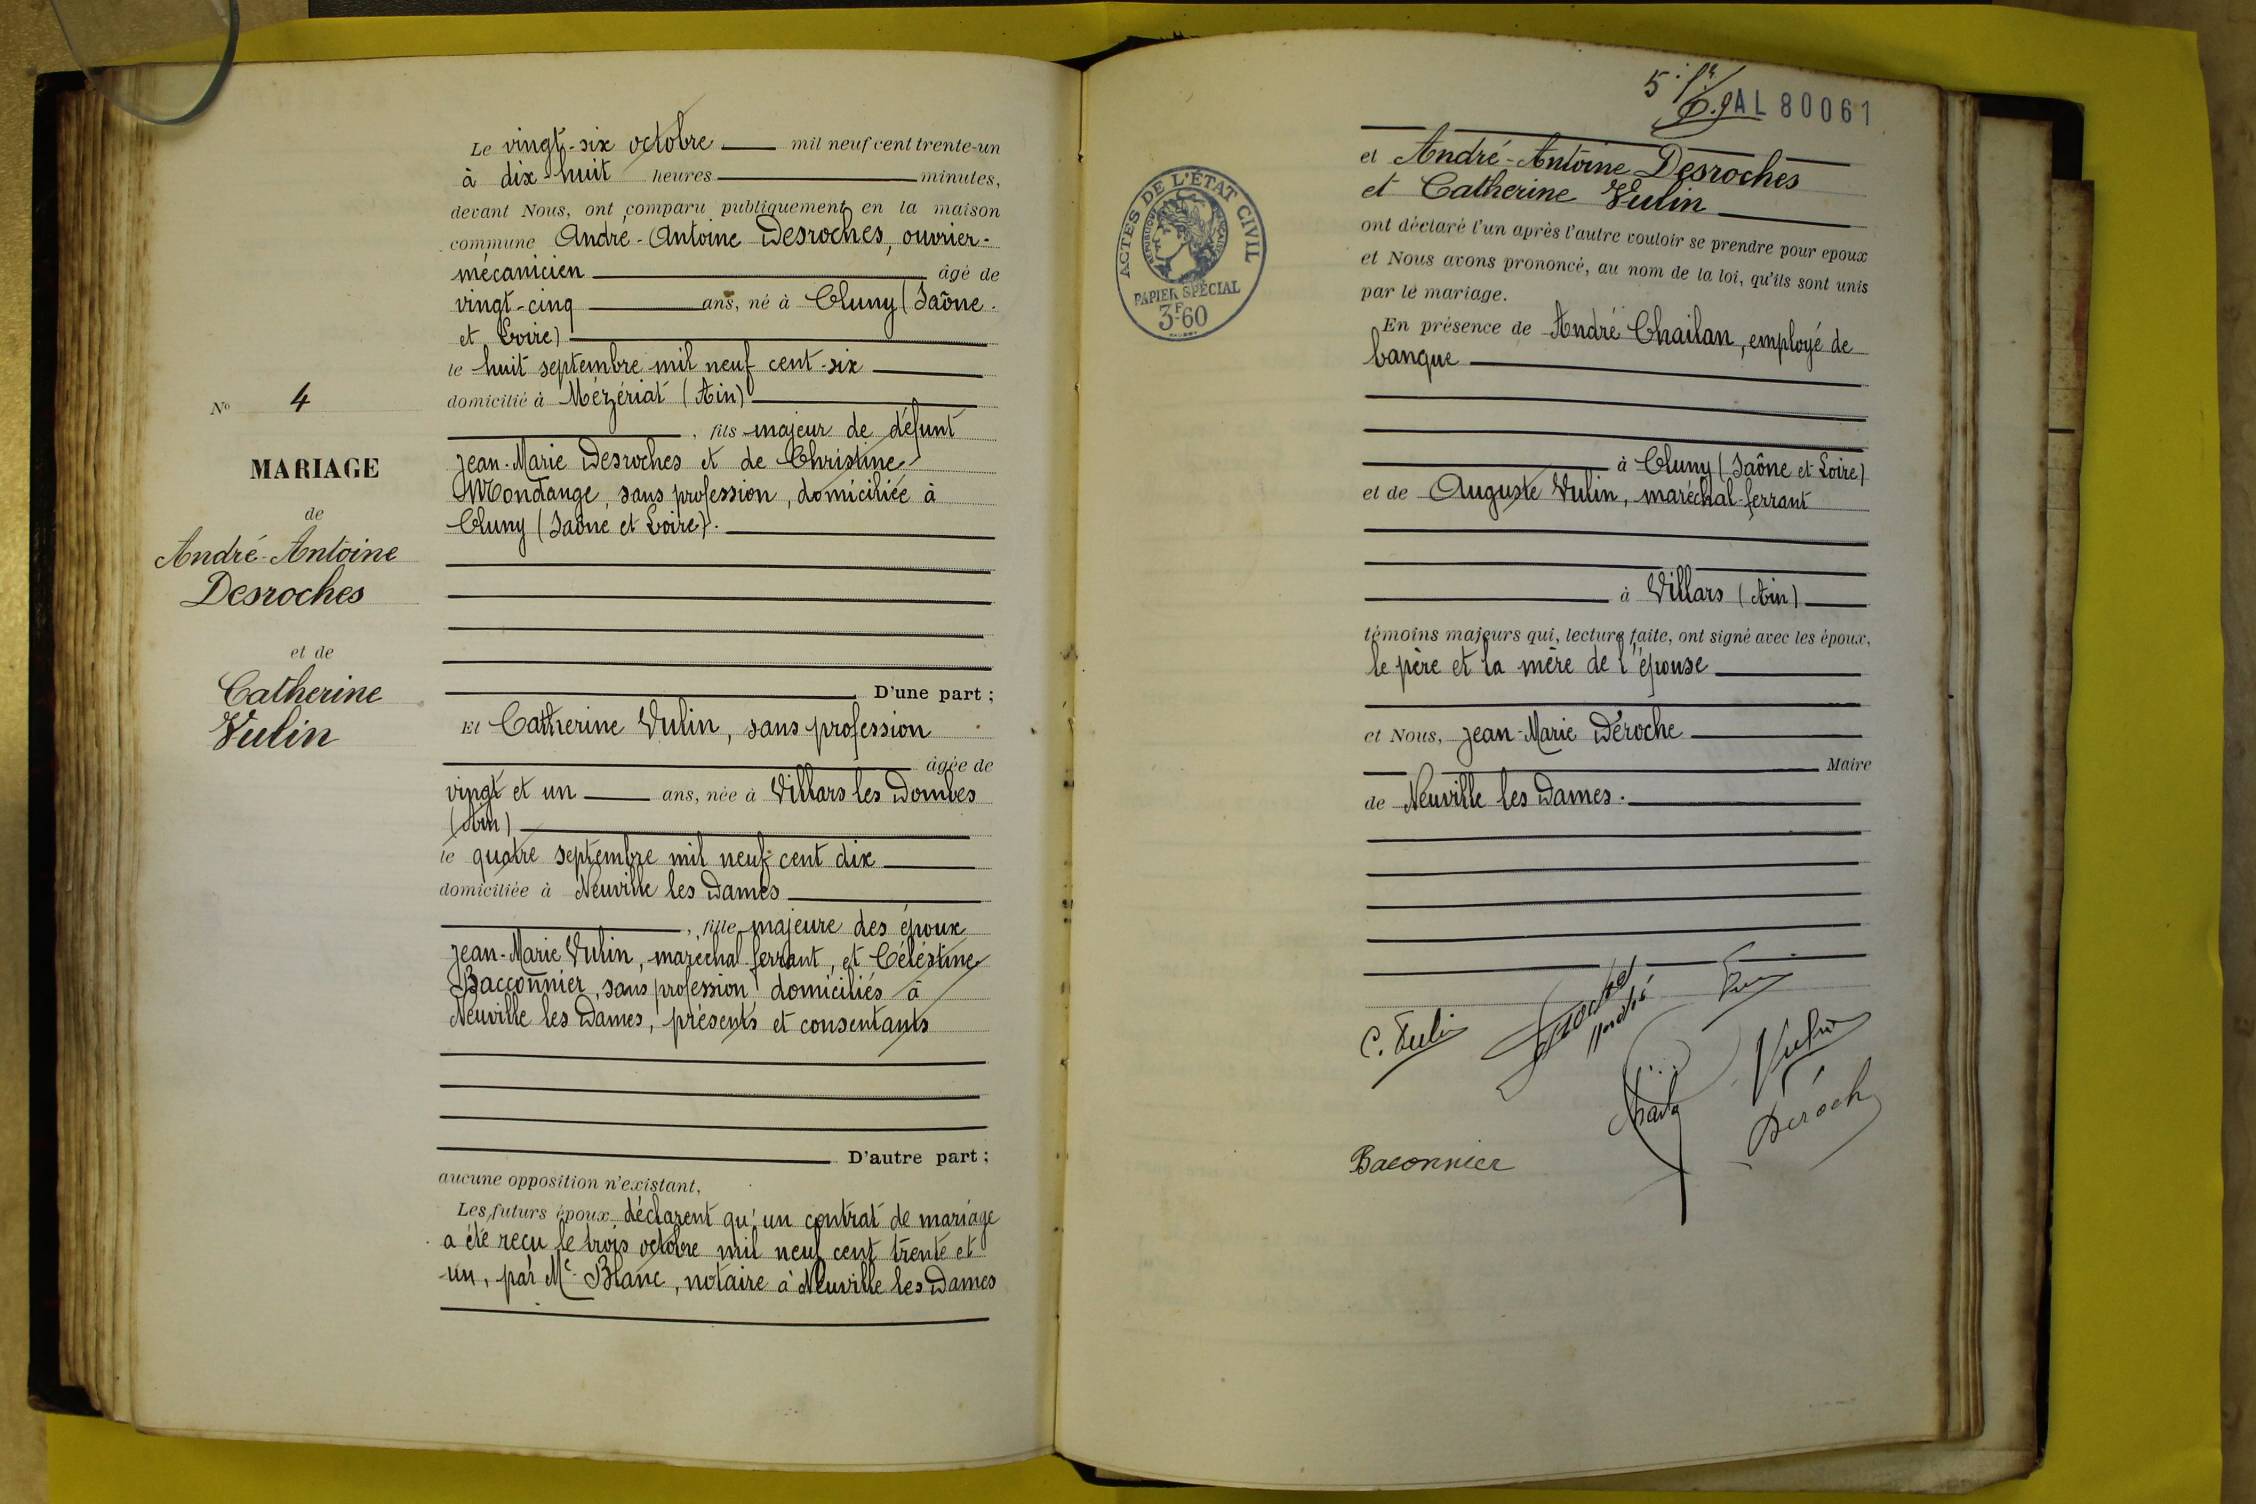 N° 4
MARIAGE
de
André-Antoine
Desroches
et de
Catherine
Vulin
Le vingt-six octobre mil neuf cent trente-un
à dix-huit heures minutes,
devant Nous, ont comparu publiquement en la maison
commune André-Antoine Desroches, ouvrier-
mécanicien âgé de
vingt-cinq ans, né à Cluny (Saône-
et Loire)
le huit septembre mil neuf cent-six
domicilié à Mézériat (Ain)
, fils majeur de défunt
Jean-Marie Desroches et de Christine
Mondange, sans profession, domiciliée à
Cluny (Saône et Loire).
D'une part ;
Et Catherine Vulin, sans profession
âgée de
vingt et un ans, née à Villars les Dombes
(Ain)
le quatre septembre mil neuf cent dix
domiciliée à Neuville les Dames
, fille majeure des époux
Jean-Marie Vulin, maréchal ferrant, et Céléstine
Bacconnier, sans profession domiciliés à
Neuville les Dames, présents et consentants
D'autre part ;
aucune opposition n'existant,
Les futurs époux déclarent qu'un contrat de mariage
a été reçu le trois octobre mil neuf cent trente et
un, par Me Blanc, notaire à Neuville les Dames
5
AL 80061
ACTES DE L'ÉTAT CIVIL
RÉPUBLIQUE FRANÇAISE
PAPIER SPÉCIAL
3F60
et André-Antoine Desroches
et Catherine Vulin
ont déclaré l'un après l'autre vouloir se prendre pour epoux
et Nous avons prononcé, au nom de la loi, qu'ils sont unis
par le mariage.
En présence de André Chailan, employé de
banque
à Cluny (Saône et Loire)
et de Auguste Vulin, maréchal-ferrant
à Villars (Ain)
témoins majeurs qui, lecture faite, ont signé avec les époux,
le père et la mère de l'épouse
et Nous, Jean-Marie Déroche
Maire
de Neuville les Dames.
C. Vulin
Vulin
Baconnier